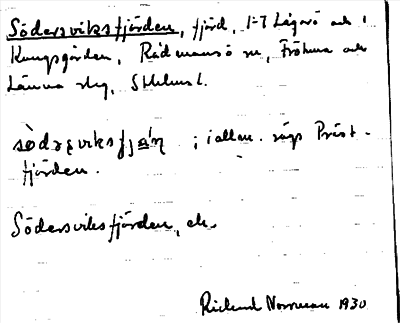 Södersviksfjärden, fjärd, 1-7 Lågarö och i
Kungsgården, Rådmansö sn, Frötuna och
Länna skg, Sthlms l.
sò̀dəṛviksfjạ́ṇ ; i allm. sägs Präst-
fjärden.
Södersviksfjärden, ek.
Rickard Norrman 1930